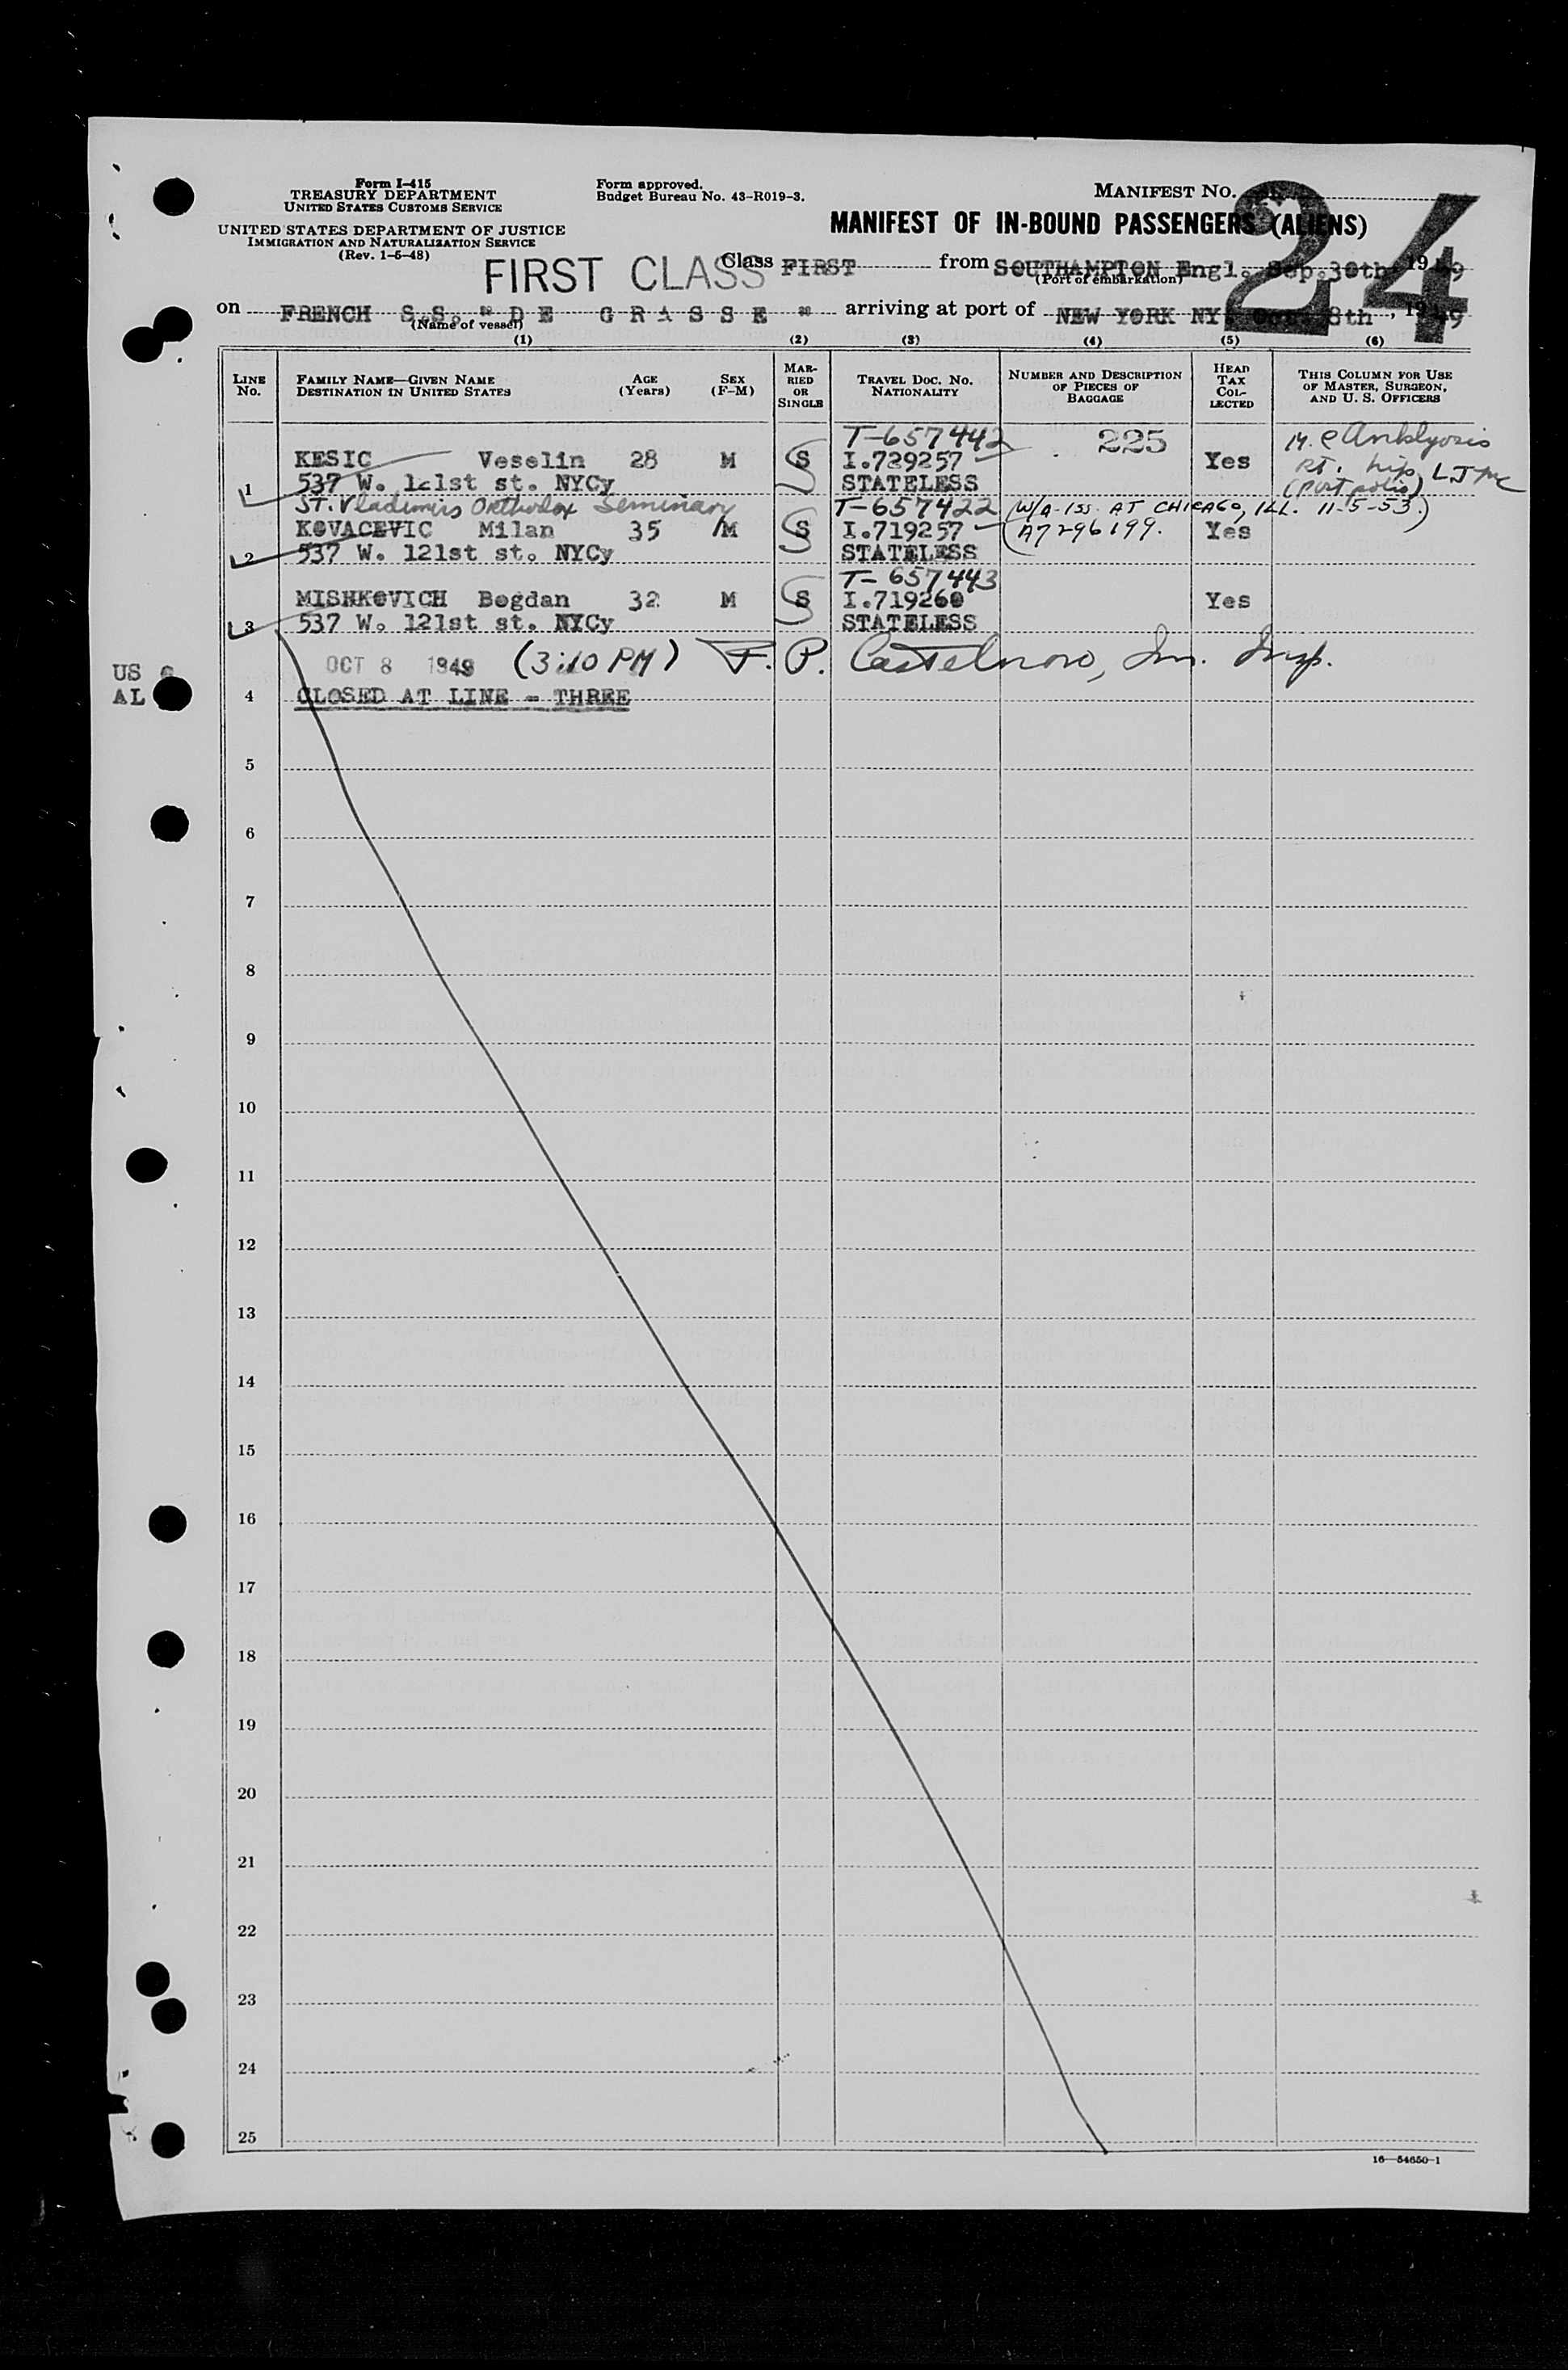 Form I-415
TREASURY DEPARTMENT
UNITED STATES CUSTOMS SERVICE
UNITED STATES DEPARTMENT OF JUSTICE
IMMIGRATION AND NATURALIZATION SERVICE
(Rev. 1-5-48)
Form approved.
Budget Bureau No. 43-R019-3.
MANIFEST NO.
24
MANIFEST OF IN-BOUND PASSENGERS (ALIENS)
FIRST CLASS Class FIRST from SOUTHAMPTON Engl. Sep.30th 1949
(Port of embarkation)
on FRENCH S.S. "D E G R A S S E " arriving at port of NEW YORK NY Oct. 8th, 1949
(Name of vessel)
(1) (2) (3) (4) (5) (6)
LINE No. FAMILY NAME—GIVEN NAME DESTINATION IN UNITED STATES AGE (Years) SEX (F-M) MARRIED OR SINGLE TRAVEL DOC. NO. NATIONALITY NUMBER AND DESCRIPTION OF PIECES OF BAGGAGE HEAD TAX COLLECTED THIS COLUMN FOR USE OF MASTER, SURGEON, AND U. S. OFFICERS
T-657442 225
KESIC Veselin 28 M S I.729257 Yes M. c Anklyosis
1 537 W. 121st st. NYCy STATELESS Rt. hip LJMc
(post polio)
ST. Vladimirs Orthodox Seminary T-657422 (W/A-ISS. AT CHICAGO, ILL. 11-5-53.)
KOVACEVIC Milan 35 M S I.719257 (A7296199. Yes
2 537 W. 121st st. NYCy STATELESS
T-657443
MISHKOVICH Bogdan 32 M S I.719260 Yes
3 537 W. 121st st. NYCy STATELESS
OCT 8 1949 (3:10 PM) F. P. Castelnovo, Im. Insp.
US
AL
4 CLOSED AT LINE - THREE
5
6
7
8
9
10
11
12
13
14
15
16
17
18
19
20
21
22
23
24
25
16—54650-1